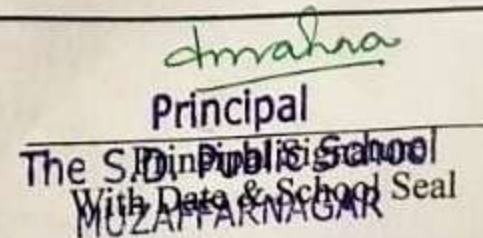 Principal
The S.D. Public School
Principal Signature
With Date & School Seal
MUZAFFARNAGAR